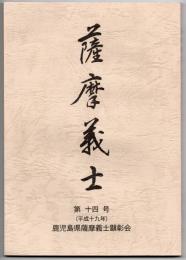 薩摩義士
第十四号
(平成十九年)
鹿児島県薩摩義士顕彰会